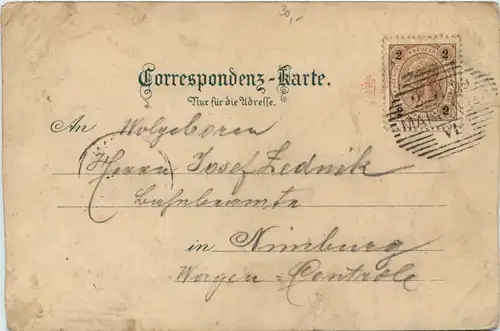 30,-
2 KREUZER 2
2 2
Correspondenz-Karte.
Nur für die Adresse.
An Wolgeboren
Herrn Josef Zednik
Bahnbeamte
in Nimburg
Wagen-Controle